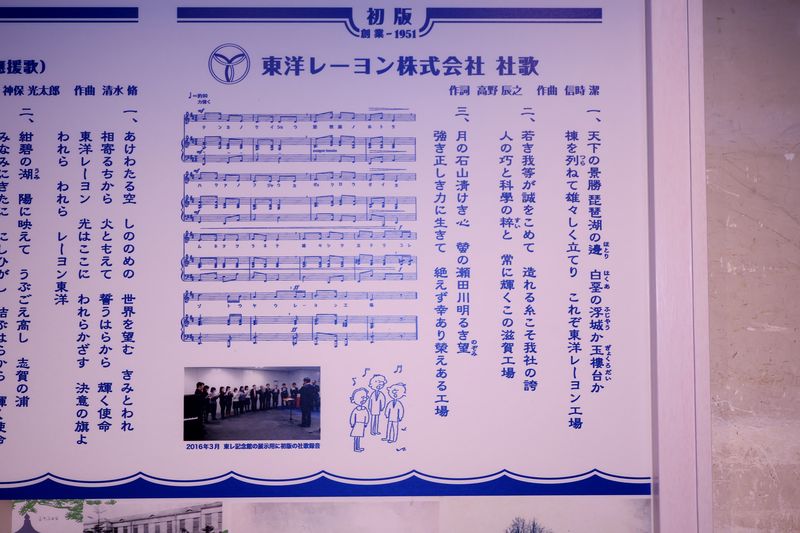 初版
創業－1951
東洋レーヨン株式会社 社歌
作詞 高野 辰之　作曲 信時 潔
一、天下の景勝 琵琶湖の邊　白堊の浮城か玉樓台か
棟を列ねて雄々しく立てり　これぞ東洋レーヨン工場
二、若き我等が誠をこめて　造れる糸こそ我社の誇
人の巧と科學の粹と　常に輝くこの滋賀工場
三、月の石山清けき心　螢の瀬田川明るき望
強き正しき力に生きて　絶えず幸あり榮えある工場
2016年3月 東レ記念館の展示用に初版の社歌録音
應援歌）
神保 光太郎　作曲 清水 脩
一、あけわたる空　しののめの　世界を望む　きみとわれ
相寄るちから　火ともえて　誓うはらから　輝く使命
東洋レーヨン　光はここに　われらかざす　決意の旗よ
われら　われら　レーヨン東洋
二、紺碧の湖　陽に映えて　うぶごえ高し　志賀の浦
みなみにきたに　こしひがし　結ぶはらから　輝く使命